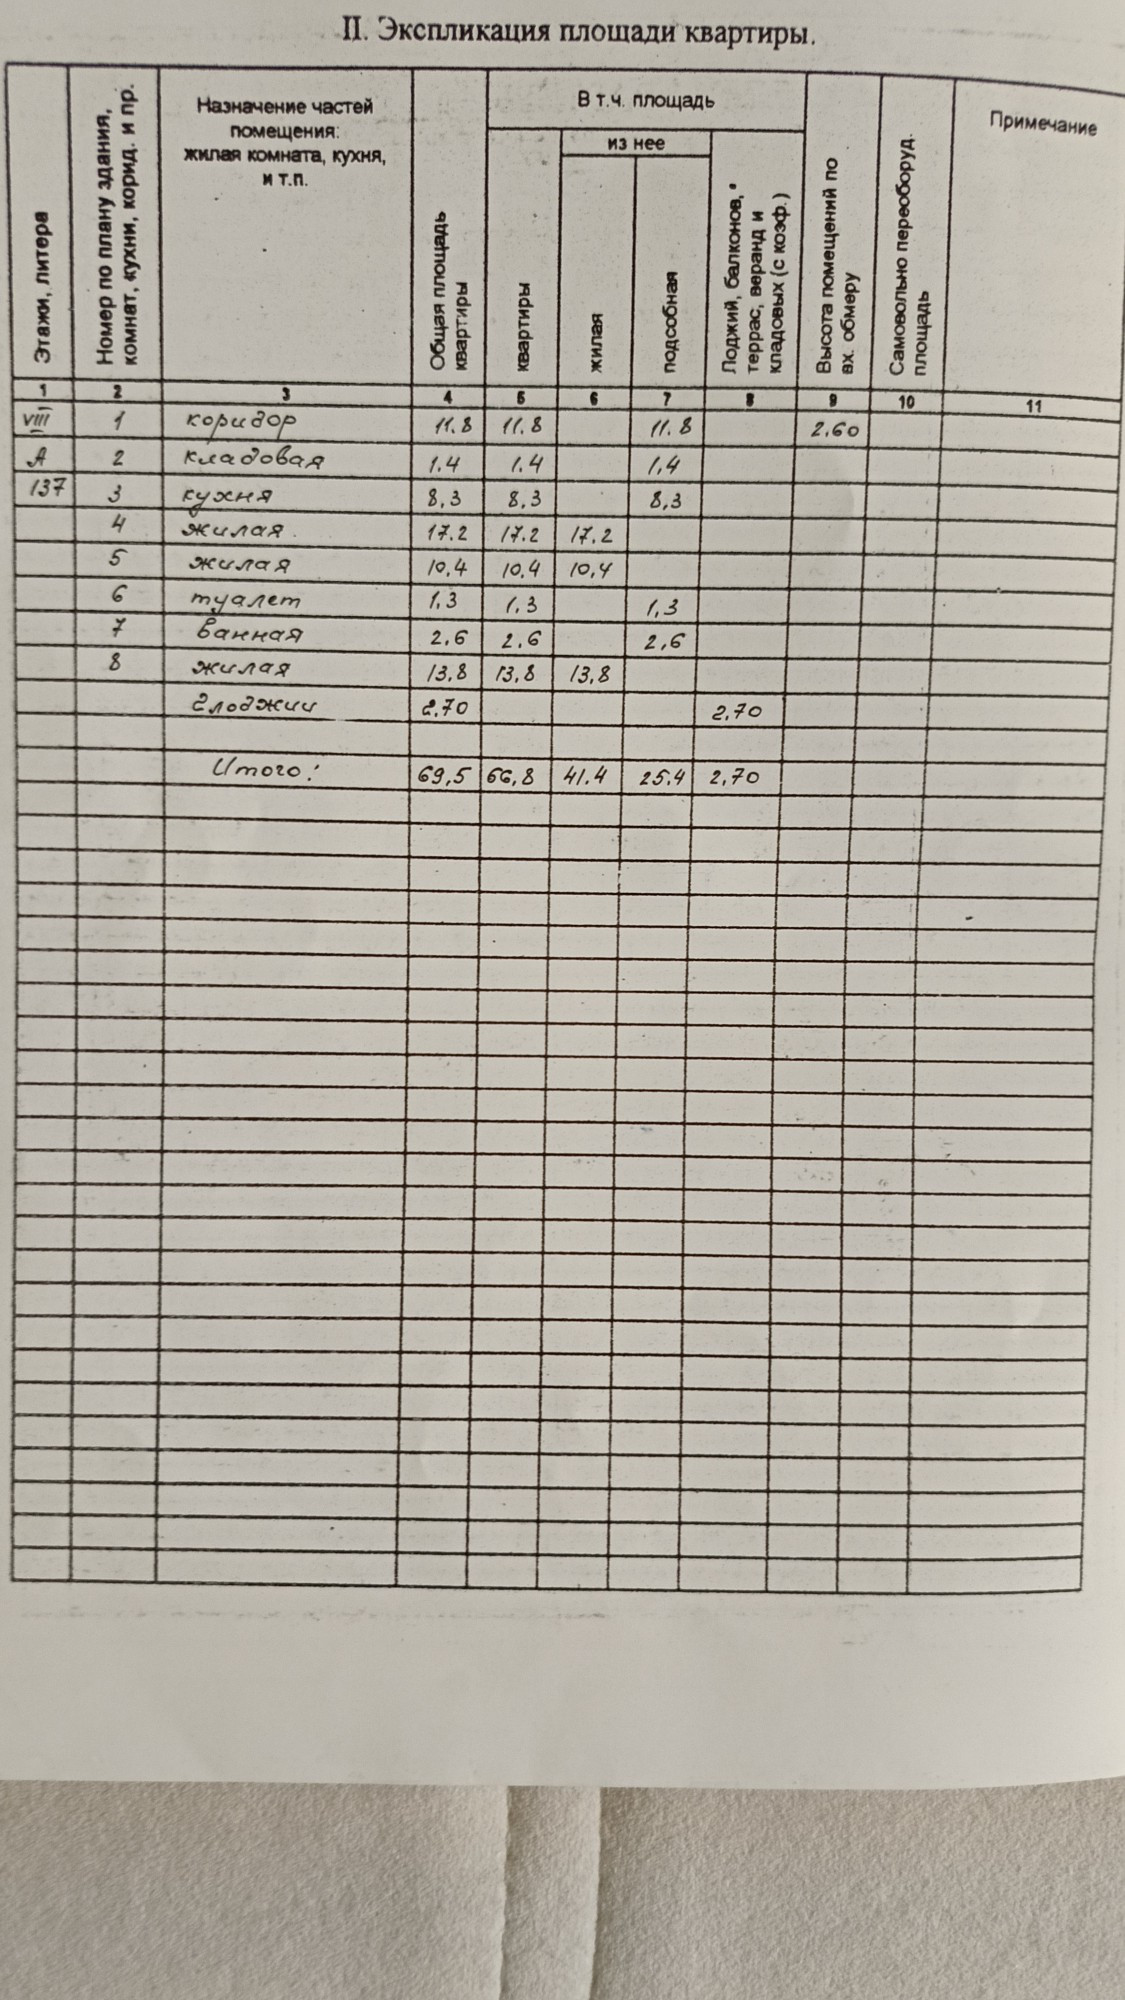 II. Экспликация площади квартиры.
Этажи, литера
Номер по плану здания, комнат, кухни, корид. и пр.
Назначение частей помещения: жилая комната, кухня, и т.п.
Общая площадь квартиры
В т.ч. площадь
квартиры
из нее
жилая
подсобная
Лоджий, балконов, террас, веранд и кладовых (с коэф.)
Высота помещений по вх. обмеру
Самовольно переоборуд. площадь
Примечание
1 2 3 4 5 6 7 8 9 10 11
VIII 1 коридор 11.8 11.8 11.8 2.60
А 2 кладовая 1.4 1.4 1,4
137 3 кухня 8,3 8,3 8,3
4 жилая 17.2 17.2 17.2
5 жилая 10,4 10,4 10,4
6 туалет 1,3 1,3 1,3
7 ванная 2.6 2.6 2,6
8 жилая 13,8 13,8 13,8
2 лоджии 2,70 2,70
Итого: 69,5 66,8 41.4 25.4 2,70